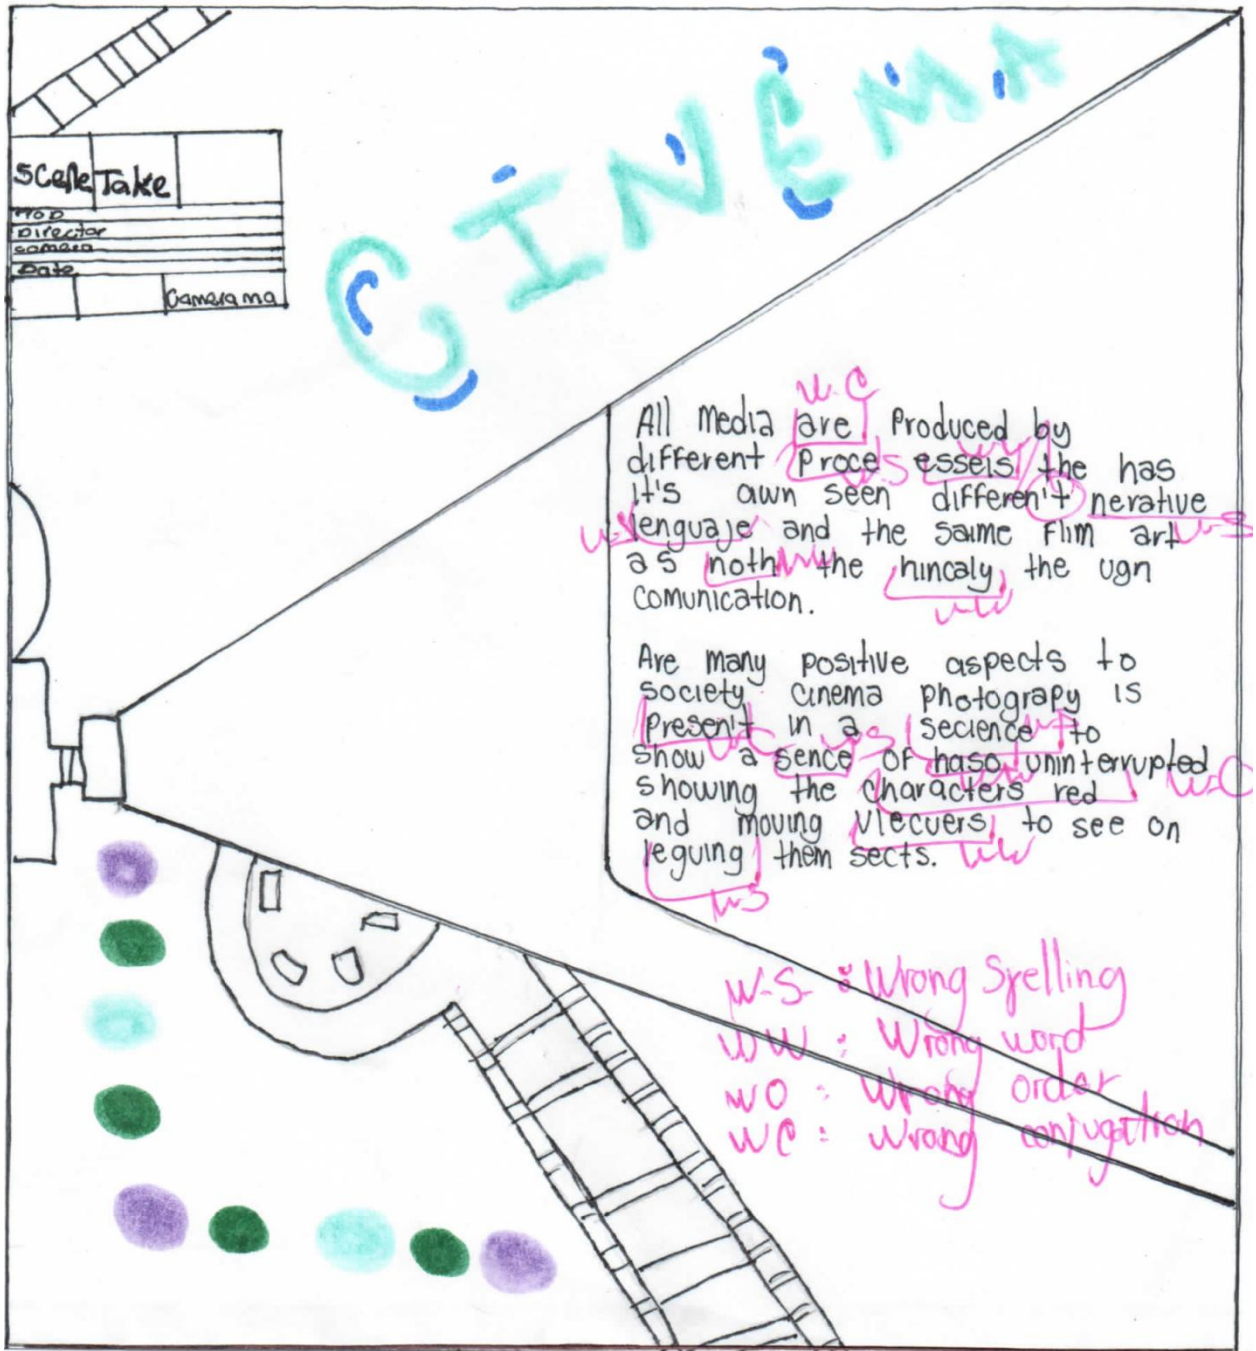 CINEMA
Scene Take
Prod
Director
camera
Date
Camerama
W.C
All media are Produced by
different Proce essels the has
it's awn seen differen't nerative
lenguaje and the saime Flim art
as noth the hincaly the ugn
comunication.
Are many positive aspects to
society cinema photograpy is
Present in a secience to
show a sence of haso uninterrupted
showing the characters red
and moving vlecuers to see on
leguing them sects.
W-S : Wrong Spelling
WW : Wrong word
WO : Wrong order
WC : Wrong conjugation